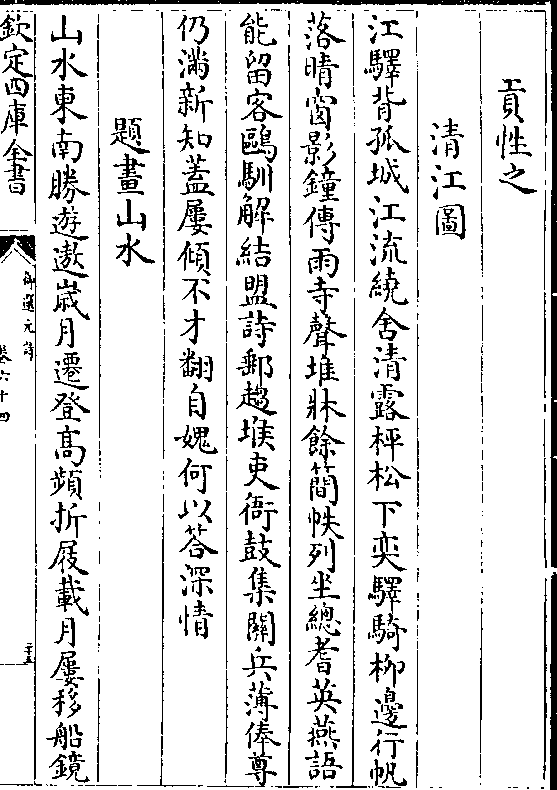 貢性之
清江圖
江驛背孤城江流繞舍清露枰松下奕驛騎柳邊行帆
落晴窗影鐘傳雨寺聲堆牀餘簡帙列坐總耆英燕語
能留客鷗馴解結盟詩郵趨堠吏衙鼓集關兵薄俸尊
仍滿新知蓋屢傾不才翻自媿何以答深情
題畫山水
山水東南勝遊遨嵗月遷登高頻折屐載月屢移船鏡
欽定四庫全書
御選元詩
卷六十四